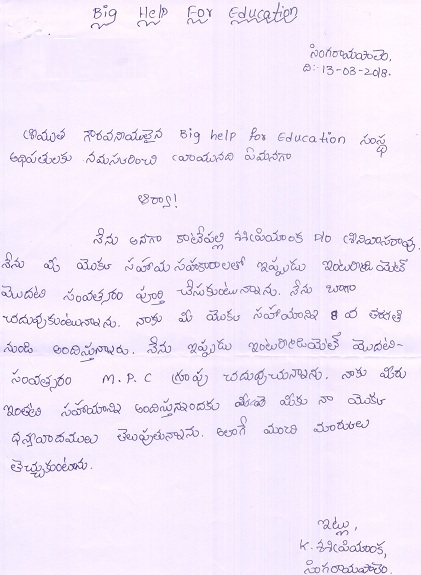 Big Help For Education
సింగరాయపాలెం,
ది:- 13-03-2018.
శ్రీయుత గౌరవనీయులైన Big help for Education సంస్థ
అధిపతులకు నమస్కరించి వ్రాయునది ఏమనగా
ఆర్యా!
నేను అనగా కాటేపల్లి శశిప్రియాంక D/o శ్రీనివాసరావు.
నేను మీ యొక్క సహాయ సహకారాలతో ఇప్పుడు ఇంటర్మీడియెట్
మొదటి సంవత్సరం పూర్తి చేసుకుంటున్నాను. నేను బాగా
చదువుకుంటున్నాను. నాకు మీ యొక్క సహాయాన్ని 8 వ తరగతి
నుండి అందిస్తున్నారు. నేను ఇప్పుడు ఇంటర్మీడియెట్ మొదటి-
సంవత్సరం M.P.C గ్రూపు చదువుచున్నాను. నాకు మీరు
ఇంతటి సహాయాన్ని అందిస్తున్నందకు మీకు నా యొక్క
ధన్యవాదములు తెలుపుతున్నాను. అలాగే మంచి మార్కులు
తెచ్చుకుంటాను.
ఇట్లు,
K. శశిప్రియాంక,
సింగరాయపాలెం.